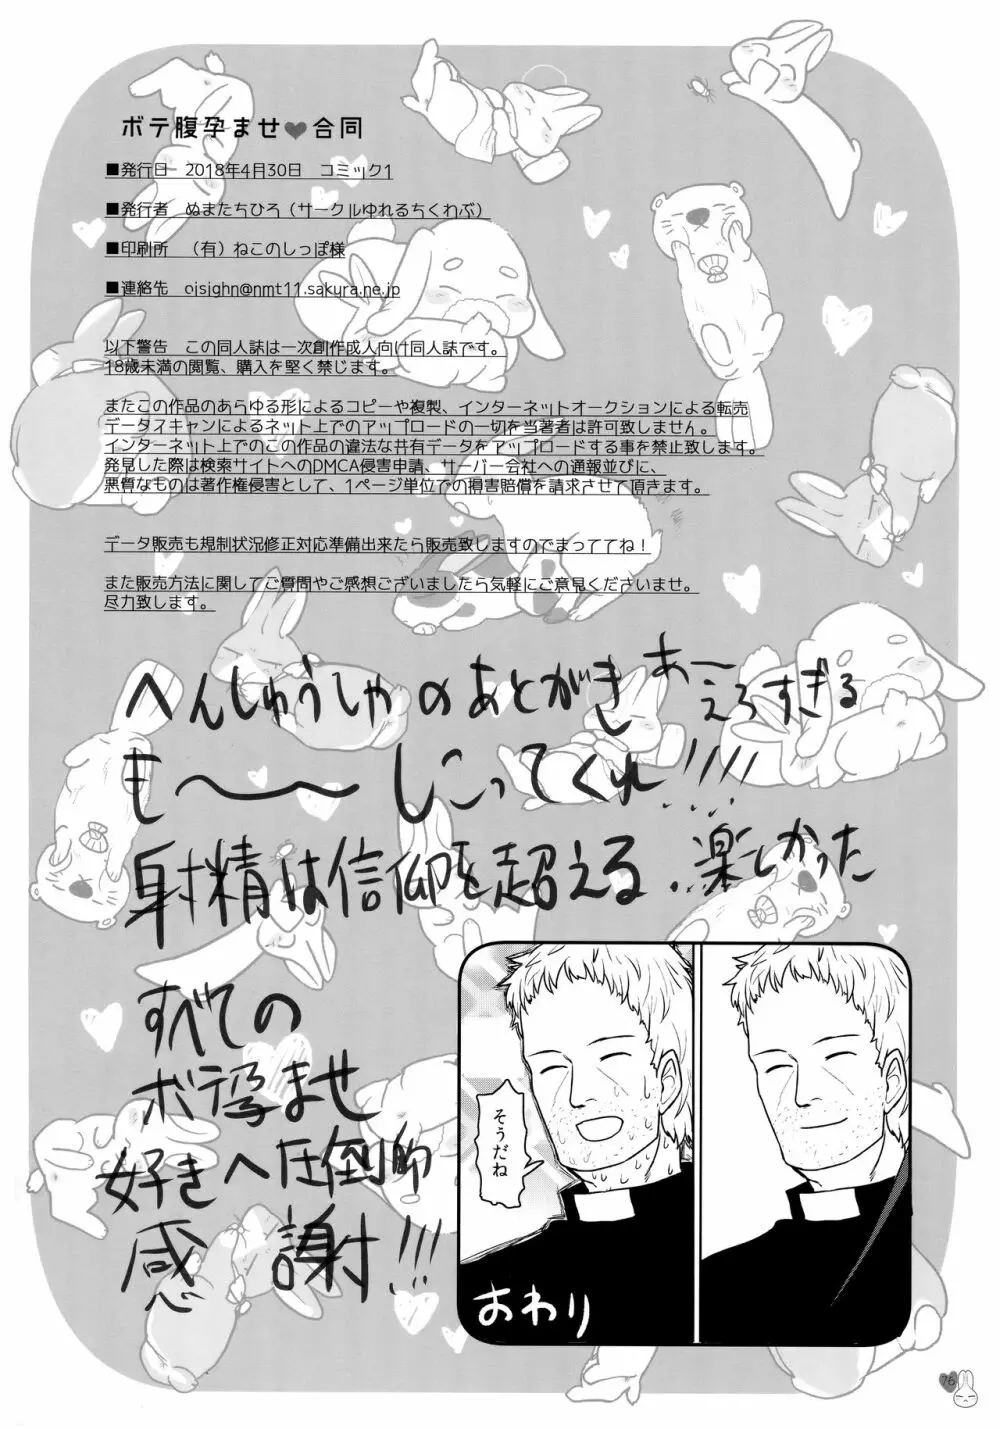 ボテ腹孕ませ♥合同
■発行日　2018年4月30日　コミック1
■発行者　ぬまたちひろ（サークルゆれるちくわぶ）
■印刷所　（有）ねこのしっぽ様
■連絡先　oisighn@nmt11.sakura.ne.jp
以下警告　この同人誌は一次創作成人向け同人誌です。
18歳未満の閲覧、購入を堅く禁じます。
またこの作品のあらゆる形によるコピーや複製、インターネットオークションによる転売
データスキャンによるネット上でのアップロードの一切を当著者は許可致しません。
インターネット上でのこの作品の違法な共有データをアップロードする事を禁止致します。
発見した際は検索サイトへのDMCA侵害申請、サーバー会社への通報並びに、
悪質なものは著作権侵害として、1ページ単位での損害賠償を請求させて頂きます。
データ販売も規制状況修正対応準備出来たら販売致しますのでまっててね！
また販売方法に関してご質問やご感想ございましたら気軽にご意見くださいませ。
尽力致します。
へんしゅうしゃのあとがき
あーえろすぎる
も〜〜しこってくれ!!!!
射精は信仰を超える.楽しかった
すべての
ボテ孕ませ
好きへ圧倒的
感謝!!!
そうだね
おわり
76